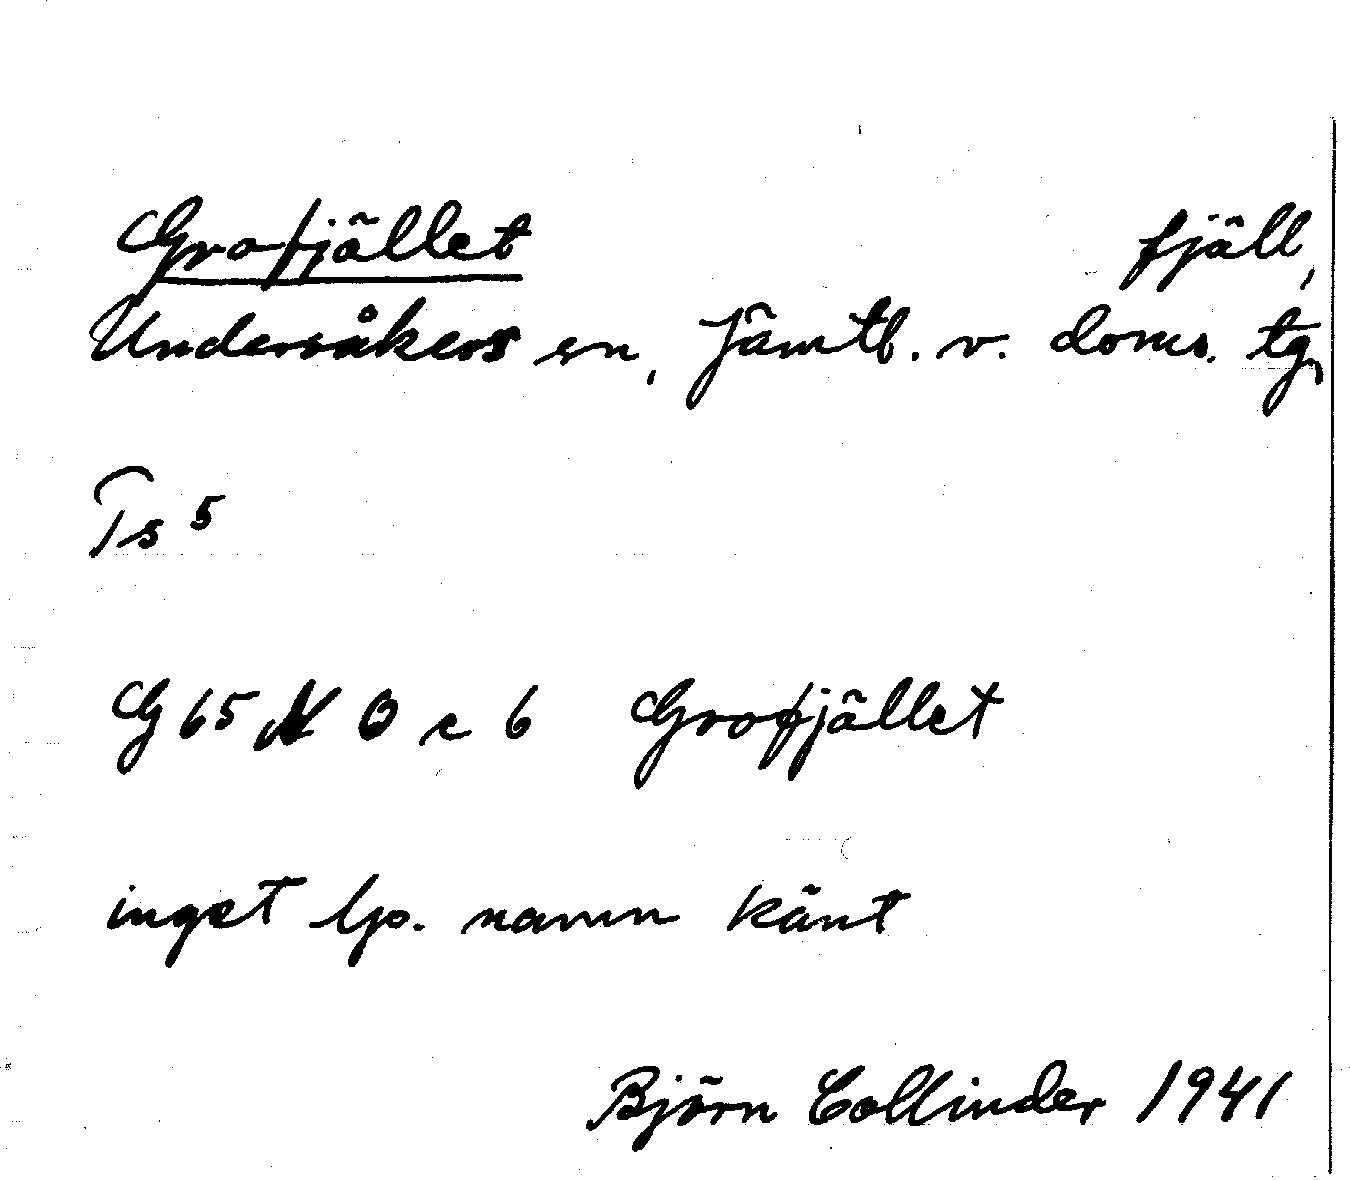 Grofjället fjäll,
Undersåkers sn, Jämtl. v. doms. tg,
Ts 5
G 65 N O c 6 Grofjället
inget lp. namn känt
Björn Collinder 1941